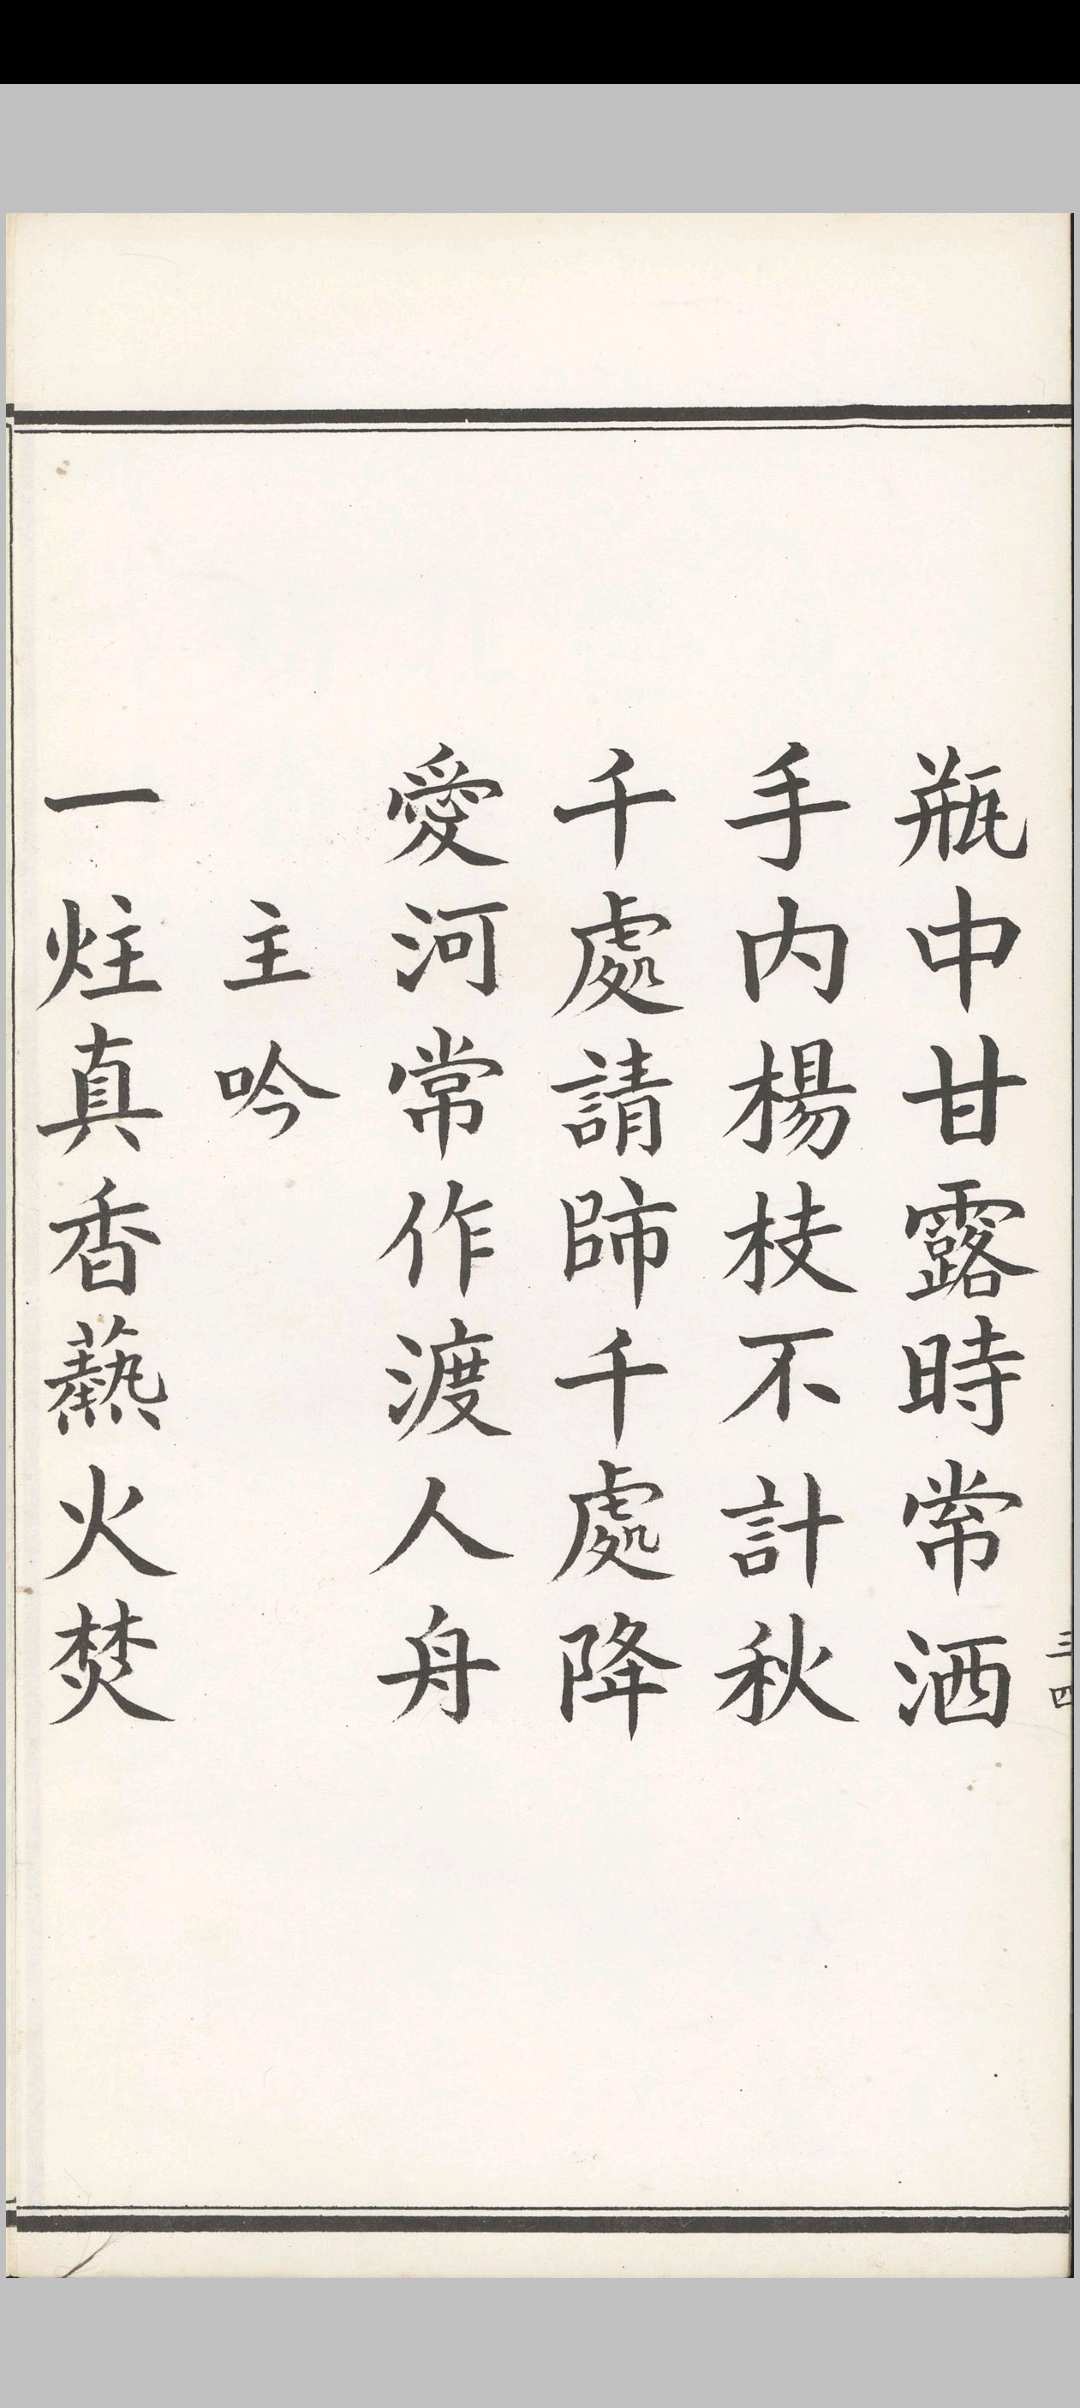 瓶中甘露時常洒
手内楊枝不計秋
千處請師千處降
愛河常作渡人舟
主吟
一炷真香爇火焚
三四